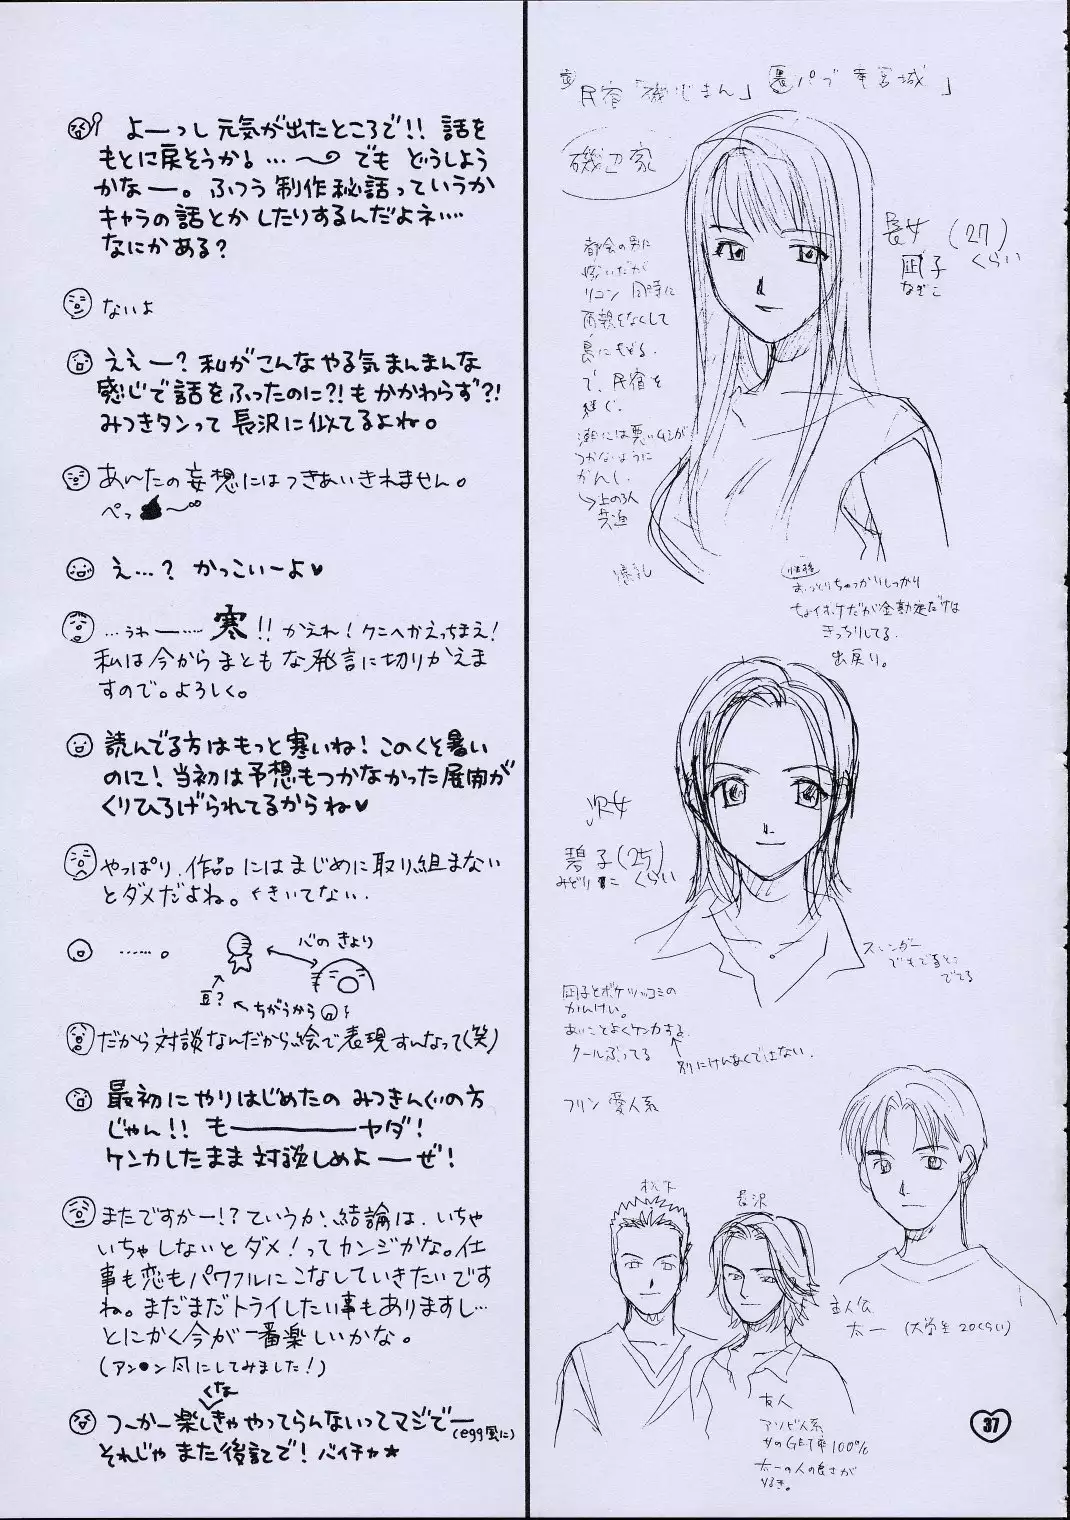 よーっし 元気が出たところで!! 話を
もとに戻そうか! … 〜 でも どうしよう
かなー。ふつう 制作秘話っていうか
キャラの話とか したりするんだよネ……
なにかある?
ないよ
ええー? 私がこんなやる気まんまんな
感じで話をふったのに?! もかかわらず?!
みつきタンって 長沢に似てるよね。
あんたの妄想にはつきあいきれません。
ぺっ 〜
え…? かっこいーよ♥
…うわー…… 寒!! かえれ! クニへかえっちまえ!
私は今からまともな発言に切りかえま
すので。よろしく。
読んでる方はもっと寒いね! このくそ暑い
のに! 当初は予想もつかなかった展開が
くりひろげられてるからね♥
やっぱり、作品にはまじめに取り組まない
とダメだよね。くきいてない。
……。
心の きょり
豆?
ちがうから
だから対談なんだから絵で表現すんなって(笑)
最初にやりはじめたの みつきんぐの方
じゃん!! もーーーーヤダ!
ケンカしたまま 対談しめよーぜ!
またですかー!? ていうか、結論は、いちゃ
いちゃしないとダメ! ってカンジかな。仕
事も恋もパワフルにこなしていきたいです
ね。まだまだトライしたい事もありますし…
とにかく今が一番楽しいかな。
(アン●ン風にしてみました!)
くな
つーかー楽しきゃやってらんないってマジでー
(egg風に)
それじゃ また後記で! バイチャ★
民宿「磯じまん」 裏 パブ 竜宮城 」
磯辺家
長女 (27)
凪子 くらい
なぎこ
都会の男に
嫁いだが
リコン 同時に
両親をなくして
島にもどる。
で、民宿を
継ぐ。
潮には悪いムシが
つかないように
かんし
→上の3人
共通
爆乳
性格
おっとりちゃっかりしっかり
ちょイボケだが金勘定だけは
きっちりしてる。
出戻り。
次女
碧子 (25)
みどりこ くらい
スレンダー
でもでるとこ
でてる
凪子とボケツッコミの
かんけい。
あいことよくケンカする。
別にけんあくではない。
クールぶってる
フリン 愛人系
松下
長沢
主人公
太一 (大学生 20くらい)
友人
アソビ人系
女のGET率100%
太一の人の良さが
すき。
37